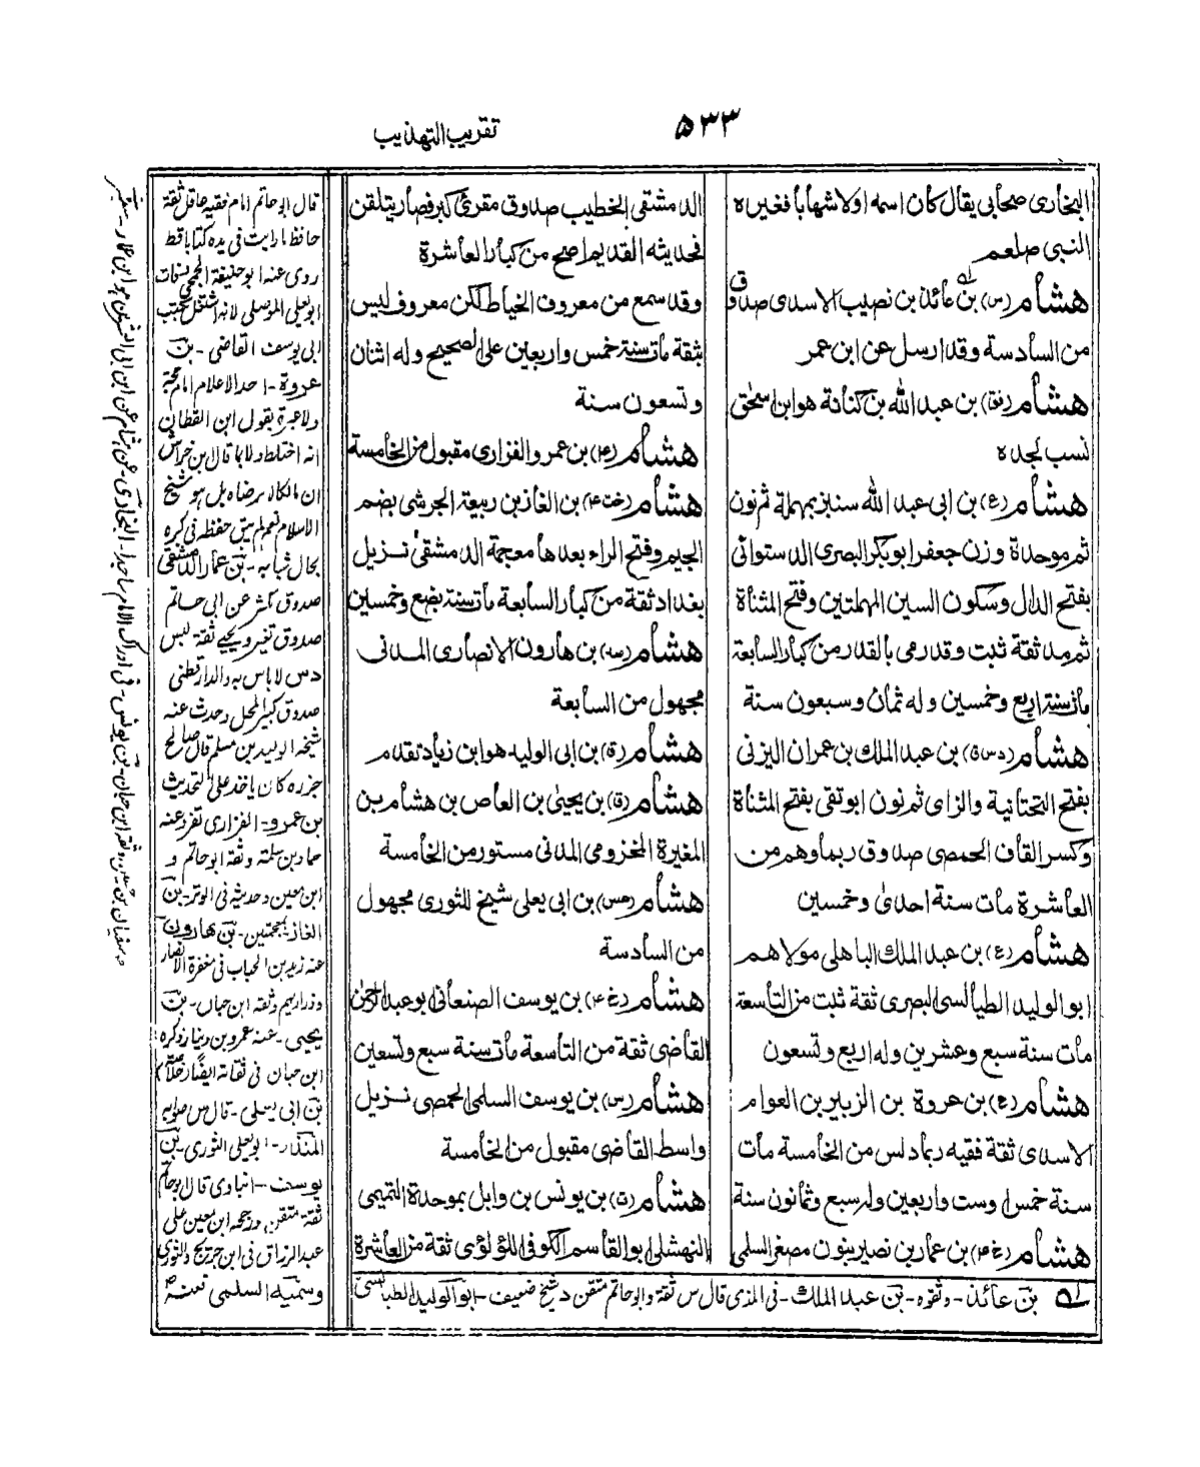 ۵۳۳
تقریب التهذیب
البخاری صحابی یقال کان اسمه اولا شهابا فغیره
النبی صلعم
هشام (س) بن عائذ بن نصیب الاسدی صدوق
من السادسة وقد ارسل عن ابن عمر
هشام بن عبد الله بن کنانة هو ابن اسحٰق
نسب لجده
هشام (ع) بن ابی عبد الله سنبر بمهملة ثم نون
ثم موحدة وزن جعفر ابو بکر البصری الدستوائی
بفتح الدال وسکون السین المهملتین وفتح المثناة
ثم مد ثقة ثبت وقد رمی بالقدر من کبار السابعة
مات سنة اربع وخمسین وله ثمان وسبعون سنة
هشام (دس ق) بن عبد الملك بن عمران الیزنی
بفتح التحتانیة والزای ثم نون ابو تقی بفتح المثناة
وکسر القاف الحمصی صدوق ربما وهم من
العاشرة مات سنة احدی وخمسین
هشام (ع) بن عبد الملك الباهلی مولاهم
ابو الولید الطیالسی البصری ثقة ثبت من التاسعة
مات سنة سبع وعشرین وله اربع وتسعون
هشام (ع) بن عروة بن الزبیر بن العوام
الاسدی ثقة فقیه ربما دلس من الخامسة مات
سنة خمس او ست واربعین وله سبع وثمانون سنة
هشام (خ ۴) بن عمار بن نصیر بنون مصغر السلمی
الدمشقی الخطیب صدوق مقرئ کبر فصار یتلقن
فحدیثه القدیم اصح من کبار العاشرة
وقد سمع من معروف الخیاط لکن معروف لیس
بثقة مات سنة خمس واربعین علی الصحیح وله اثنان
وتسعون سنة
هشام (۴) بن عمرو الفزاری مقبول من الخامسة
هشام (خت ۴) بن الغاز بن ربیعة الجرشی بضم
الجیم وفتح الراء بعدها معجمة الدمشقی نزیل
بغداد ثقة من کبار السابعة مات سنة بضع وخمسین
هشام بن هارون الانصاری المدنی
مجهول من السابعة
هشام (ق) بن ابی الولید هو ابن زیاد تقدم
هشام (ق) بن یحییٰ بن العاص بن هشام بن
المغیرة المخزومی المدنی مستور من الخامسة
هشام (عس) بن ابی یعلی شیخ للثوری مجهول
من السادسة
هشام (خ ۴) بن یوسف الصنعانی ابو عبد الرحمٰن
القاضی ثقة من التاسعة مات سنة سبع وتسعین
هشام (س) بن یوسف السلمی الحمصی نزیل
واسط القاضی مقبول من الخامسة
هشام (ت) بن یونس بن وابل بموحدة التمیمی
النهشلی ابو القاسم الکوفی اللؤلؤی ثقة من العاشرة
بن عائذ - وثقوه - بن عبد الملك - فی المزی قال س ثقة وابو حاتم متقن د شیخ ضعیف - ابو الولید الطیالسی
قال ابو حاتم امام فقیه عاقل ثقة
حافظ ما رایت فی یده کتابا قط
روی عنه ابو خلیفة الجمحی
ابو یعلی الموصلی لانه اشتغل بکتب
ابی یوسف القاضی - بن
عروة - احد الاعلام امام حجة
ولا عبرة بقول ابن القطان
انه اختلط ولا بما قال ابن خراش
ان مالکا لا یرضاه بل هو شیخ
الاسلام نعم لم یبق حفظه فی کبره
بحال شبابه - بن عمار الدمشقی
صدوق مکثر عن ابی حاتم
صدوق تغیر ویحیی ثقة لیس
دس لا باس به والدارقطنی
صدوق کبیر المحل وحدث عنه
شیخه الولید بن مسلم قال صالح
جزره کان یاخذ علی التحدیث
بن عمرو - الفزاری تفرد عنه
حماد بن سلمة وثقه ابو حاتم و
ابن معین وحدیثه فی الوتر - بن
الغاز - بمعجمتین - بن هارون
عنه زید بن الحباب فی مغفرة الانصار
وذراریهم وثقه ابن حبان - بن
یحیی - عنه عمرو بن دینار ذکره
ابن حبان فی ثقاته ایضا
بن ابی یعلی - قال س صوابه
المنذر - ابو یعلی الثوری - بن
یوسف - ابناوی قال ابو حاتم
ثقة متقن ورجحه ابن معین علی
عبد الرزاق فی ابن جریج والثوری
وسمیه السلمی